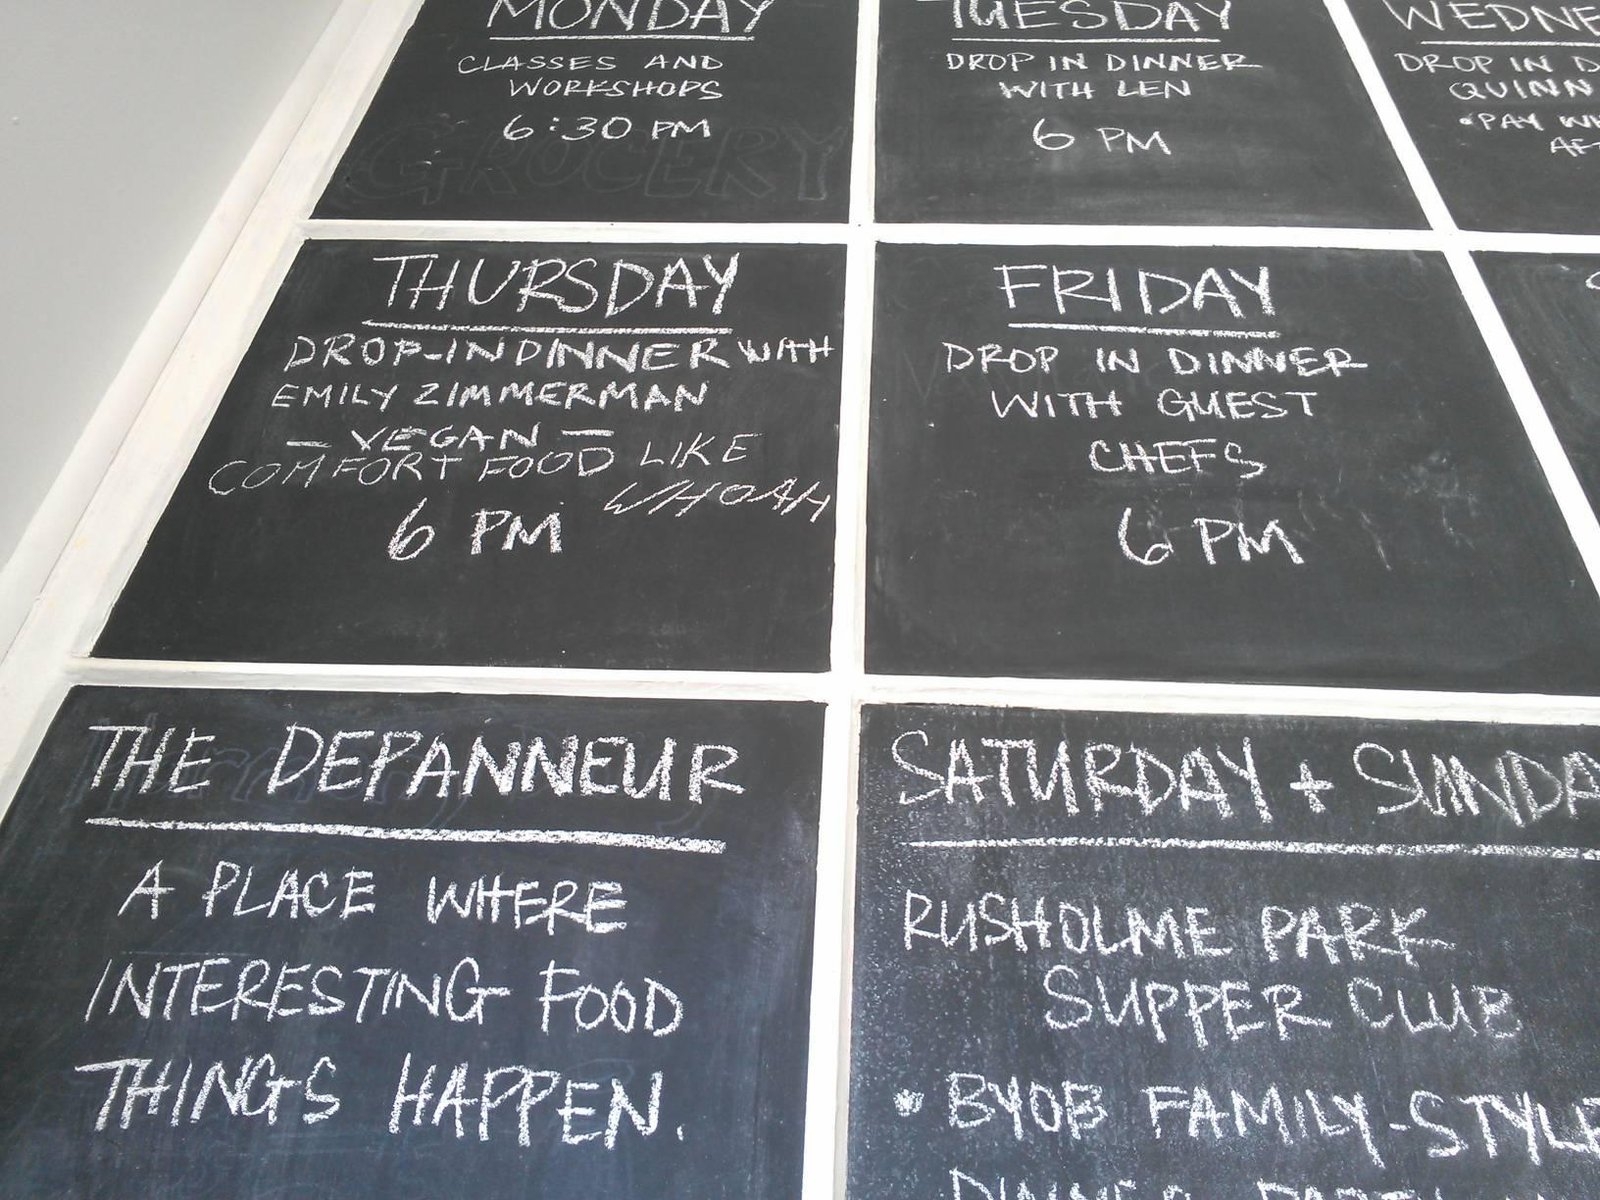 MONDAY
CLASSES AND
WORKSHOPS
6:30 PM
GROCERY
TUESDAY
DROP IN DINNER
WITH LEN
6 PM
WEDNE
DROP IN D
QUINN
•PAY WH
AF
THURSDAY
DROP-IN DINNER WITH
EMILY ZIMMERMAN
— VEGAN —
COMFORT FOOD LIKE
WHOAH
6 PM
FRIDAY
DROP IN DINNER
WITH GUEST
CHEFS
6 PM
THE DEPANNEUR
A PLACE WHERE
INTERESTING FOOD
THINGS HAPPEN.
SATURDAY + SUNDA
RUSHOLME PARK
SUPPER CLUB
• BYOB FAMILY-STYLE